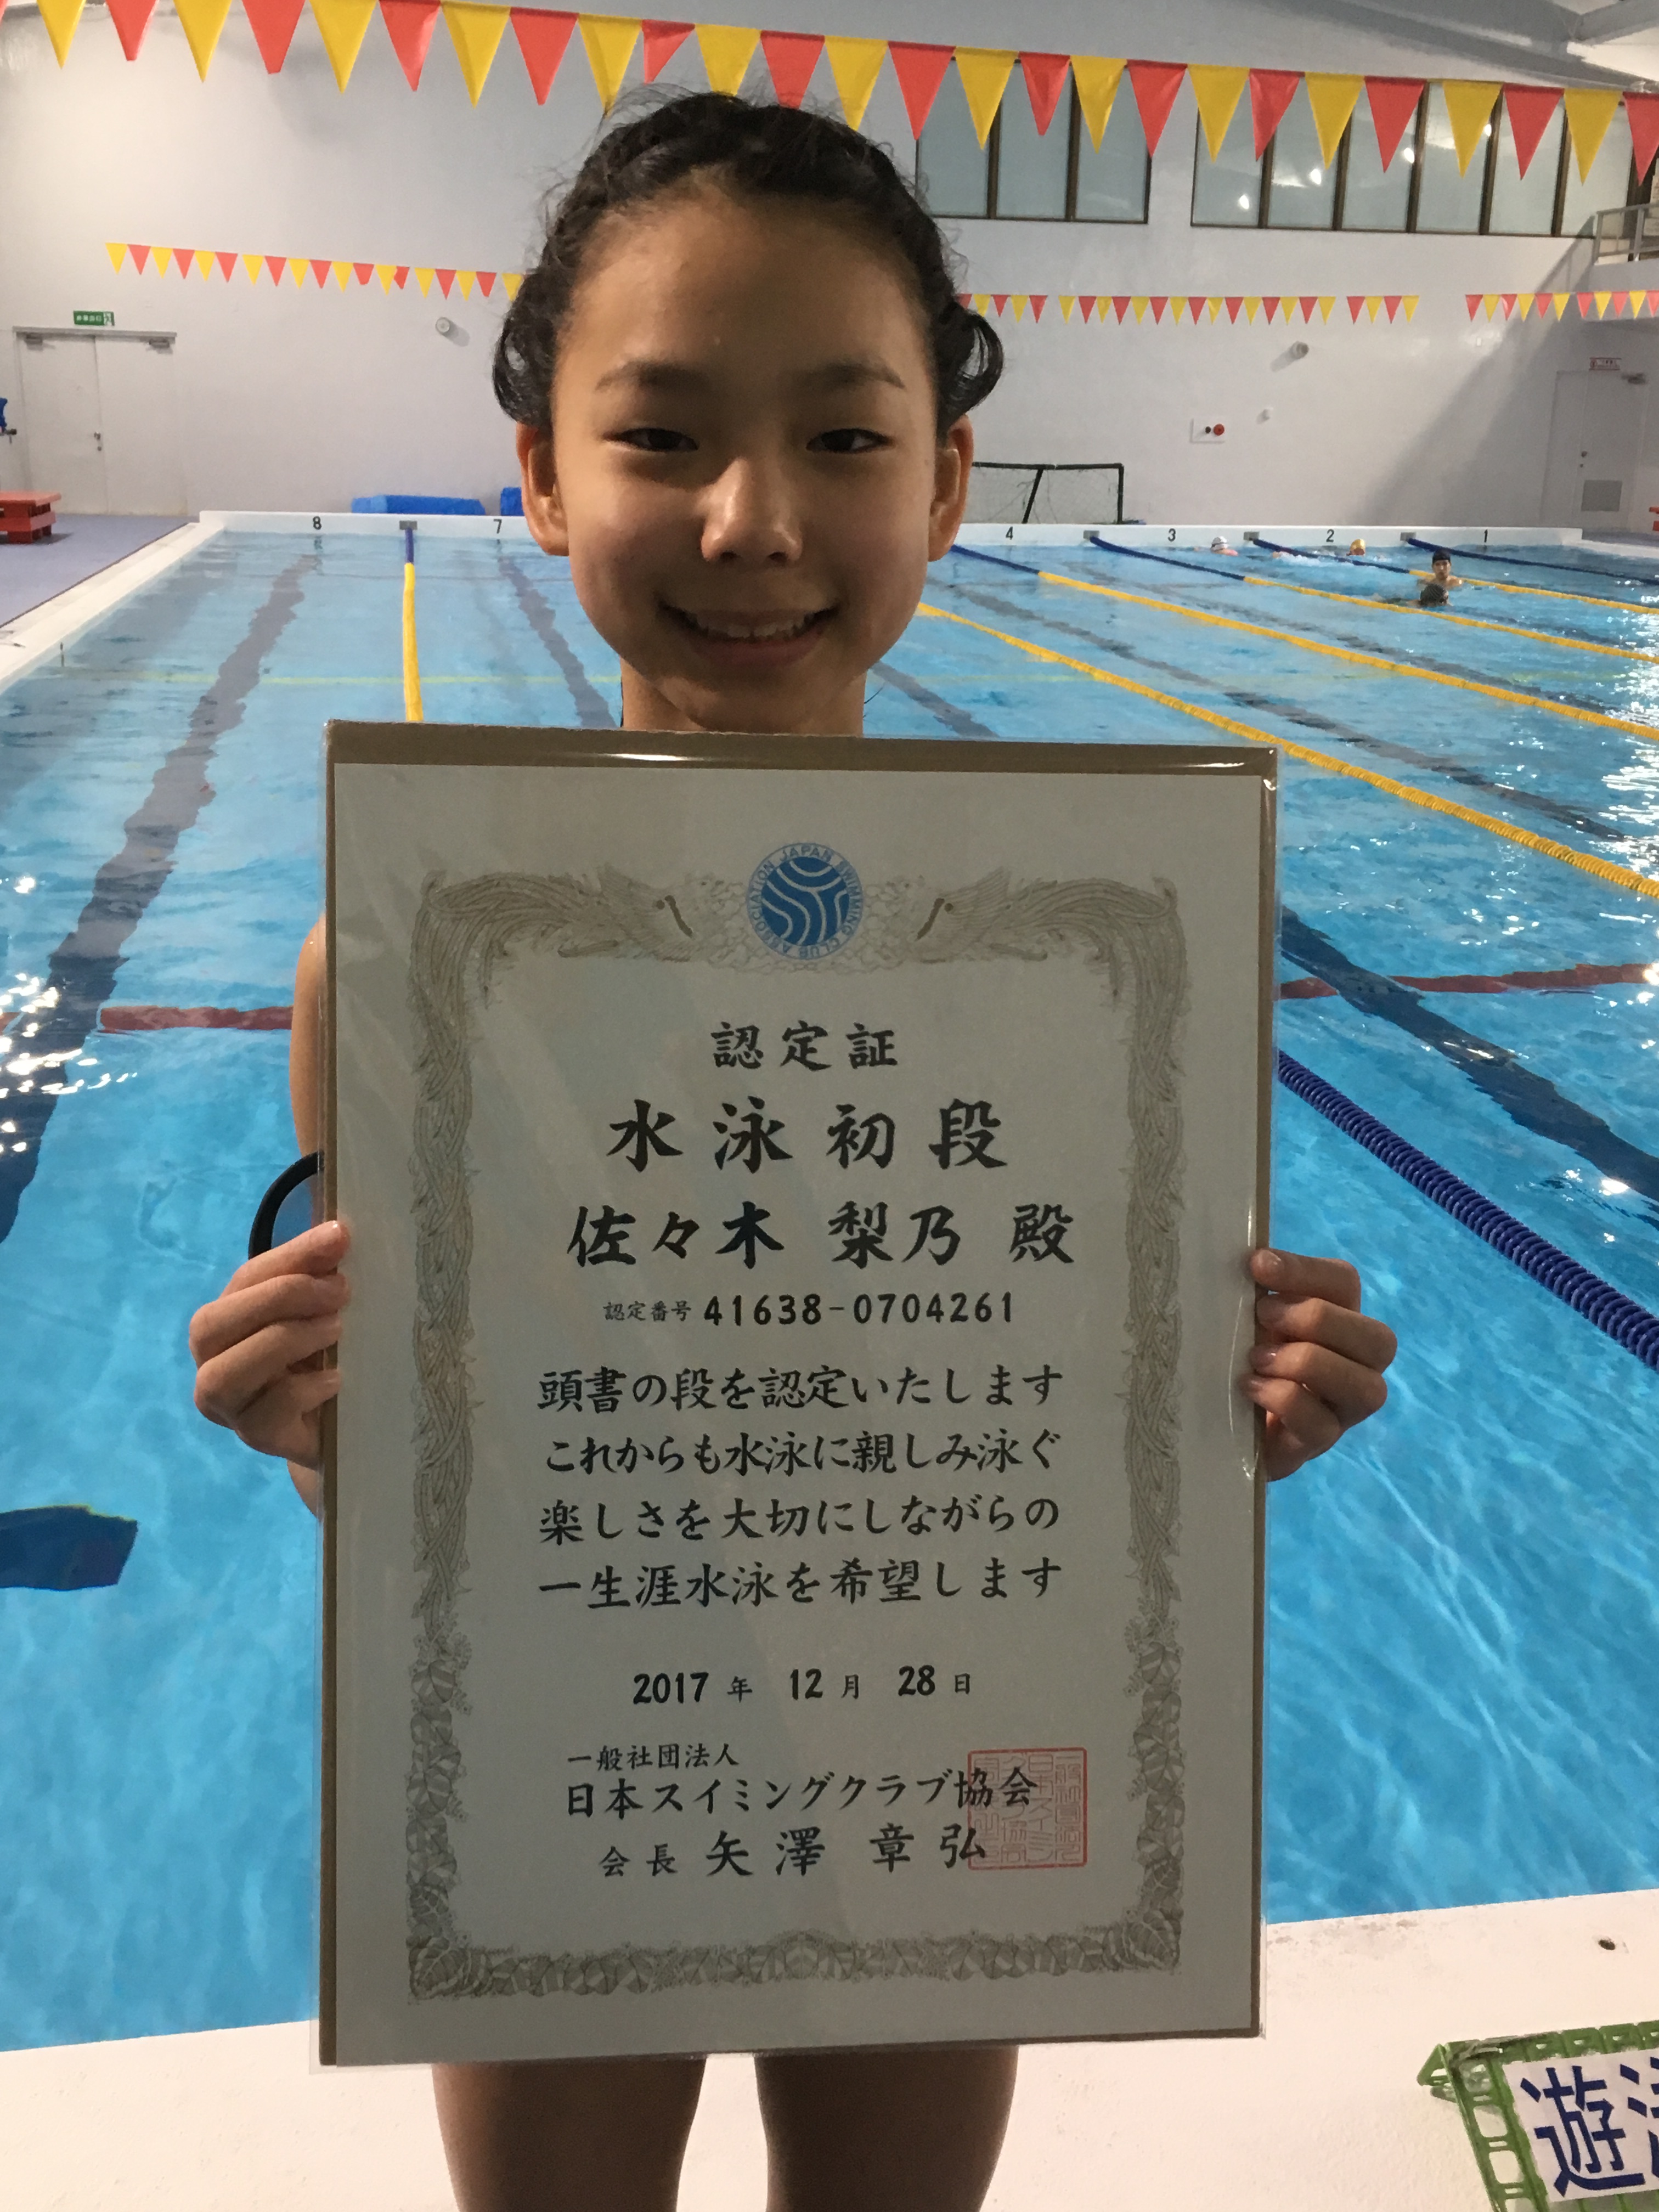 8
7
4
3
2
1
JAPAN SWIMMING CLUB ASSOCIATION
認定証
水泳初段
佐々木 梨乃 殿
認定番号 41638-0704261
頭書の段を認定いたします
これからも水泳に親しみ泳ぐ
楽しさを大切にしながらの
一生涯水泳を希望します
2017 年 12 月 28 日
一般社団法人
日本スイミングクラブ協会
会長 矢澤 章弘
遊泳